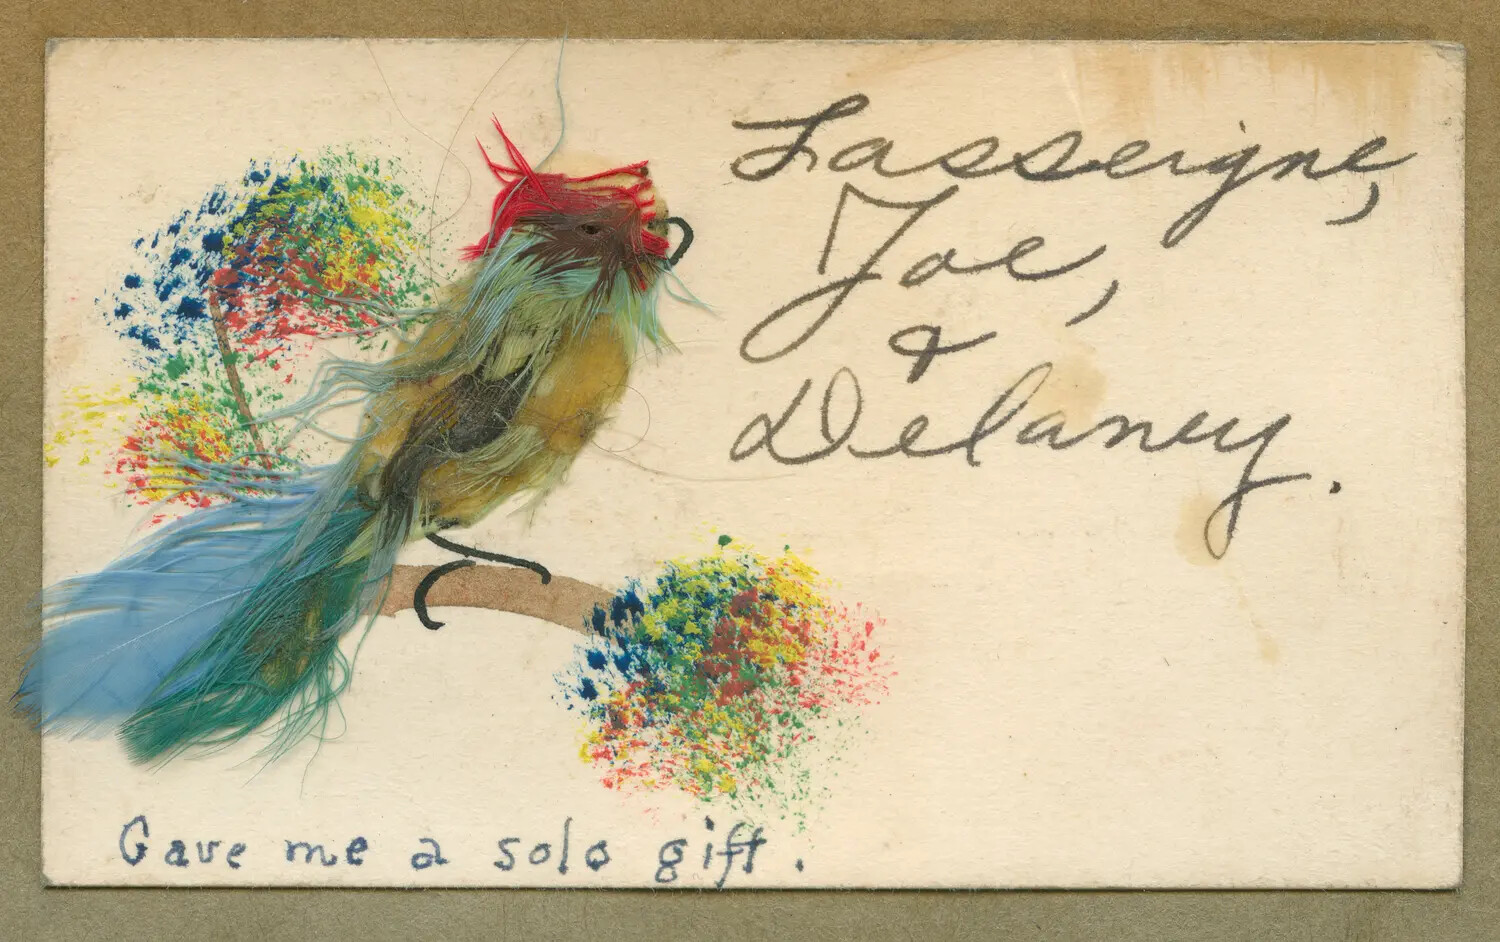 Lasseigne,
Joe,
&
Delaney.
Gave me a solo gift.